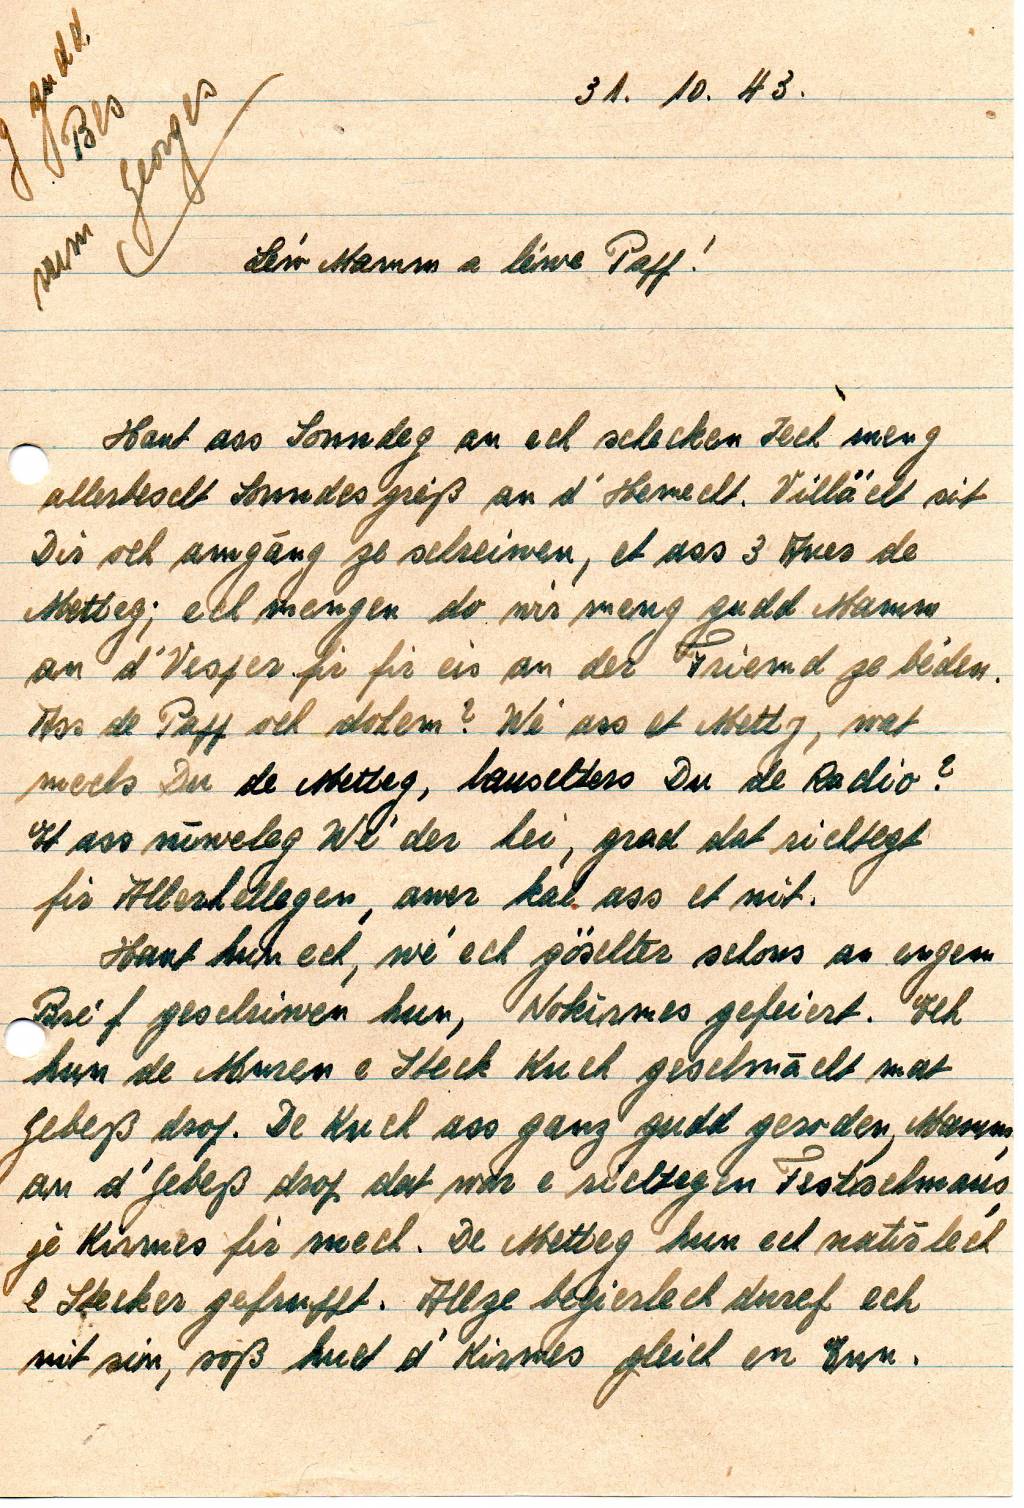 g gudd
Bes
vum Georges
31. 10. 43.
Léiw Mamm a léiwe Papp!
Haut ass Sonndeg an ech schecken Iech meng
allerbescht Sonndesgréiß an d'Hemecht. Villäicht sit
Dir och amgäng ze schreiwen, et ass 3 Auer de
Metteg; ech mengen do wir meng gudd Mamm
an d'Vesper fir fir eis an der Friemd ze bieden.
Ass de Papp och dohem? Wé ass et Metty, wat
mechs Du de Metteg, lauschters Du de Radio?
Et ass niweleg Wé'der hei, grad dat richtegt
fir Allerhellegen, awer kal ass et nit.
Haut hun ech, wé ech göschter schons an engem
Bré'f geschriwen hun, Nokirmes gefeiert. Ech
hun de Muren e Steck Kuch geschmācht mat
Gebeß drop. De Kuch ass ganz gudd geroden, Mamm,
an d'Gebeß drop dat wor e richtegen Festschmaus
je Kirmes fir mech. De Metteg hun ech natirlech
2 Stecker gefrupft. Allze begierlech duref ech
nit sin, soß huet d'Kirmes gleich en Enn.